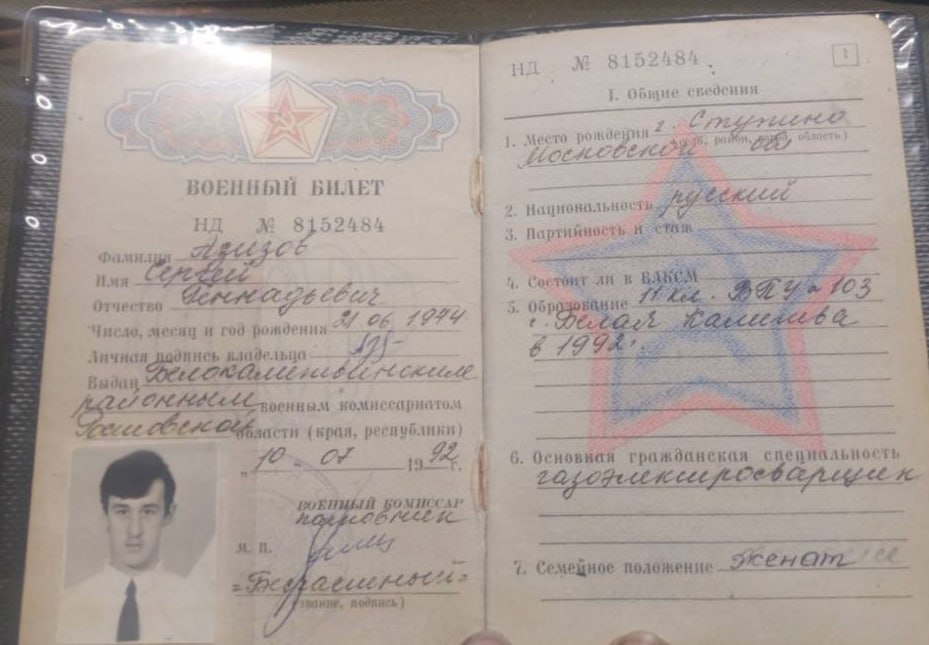 ВОЕННЫЙ БИЛЕТ
НД № 8152484
Фамилия Азизов
Имя Сергей
Отчество Геннадьевич
Число, месяц и год рождения 21 06 1974
Личная подпись владельца
Выдан Белокалитвинским
районным военным комиссариатом
Ростовской области (края, республики)
„10 „ 07 1992 г.
ВОЕННЫЙ КОМИССАР
полковник
М. П.
(звание, подпись)
НД № 8152484
1
I. Общие сведения
1. Место рождения г. Ступино
Московской обл
2. Национальность русский
3. Партийность и стаж
4. Состоит ли в ВЛКСМ
5. Образование 11 кл. ВПУ № 103
г. Белая Калитва
в 1992г.
6. Основная гражданская специальность
газоэлектросварщик
7. Семейное положение Женат